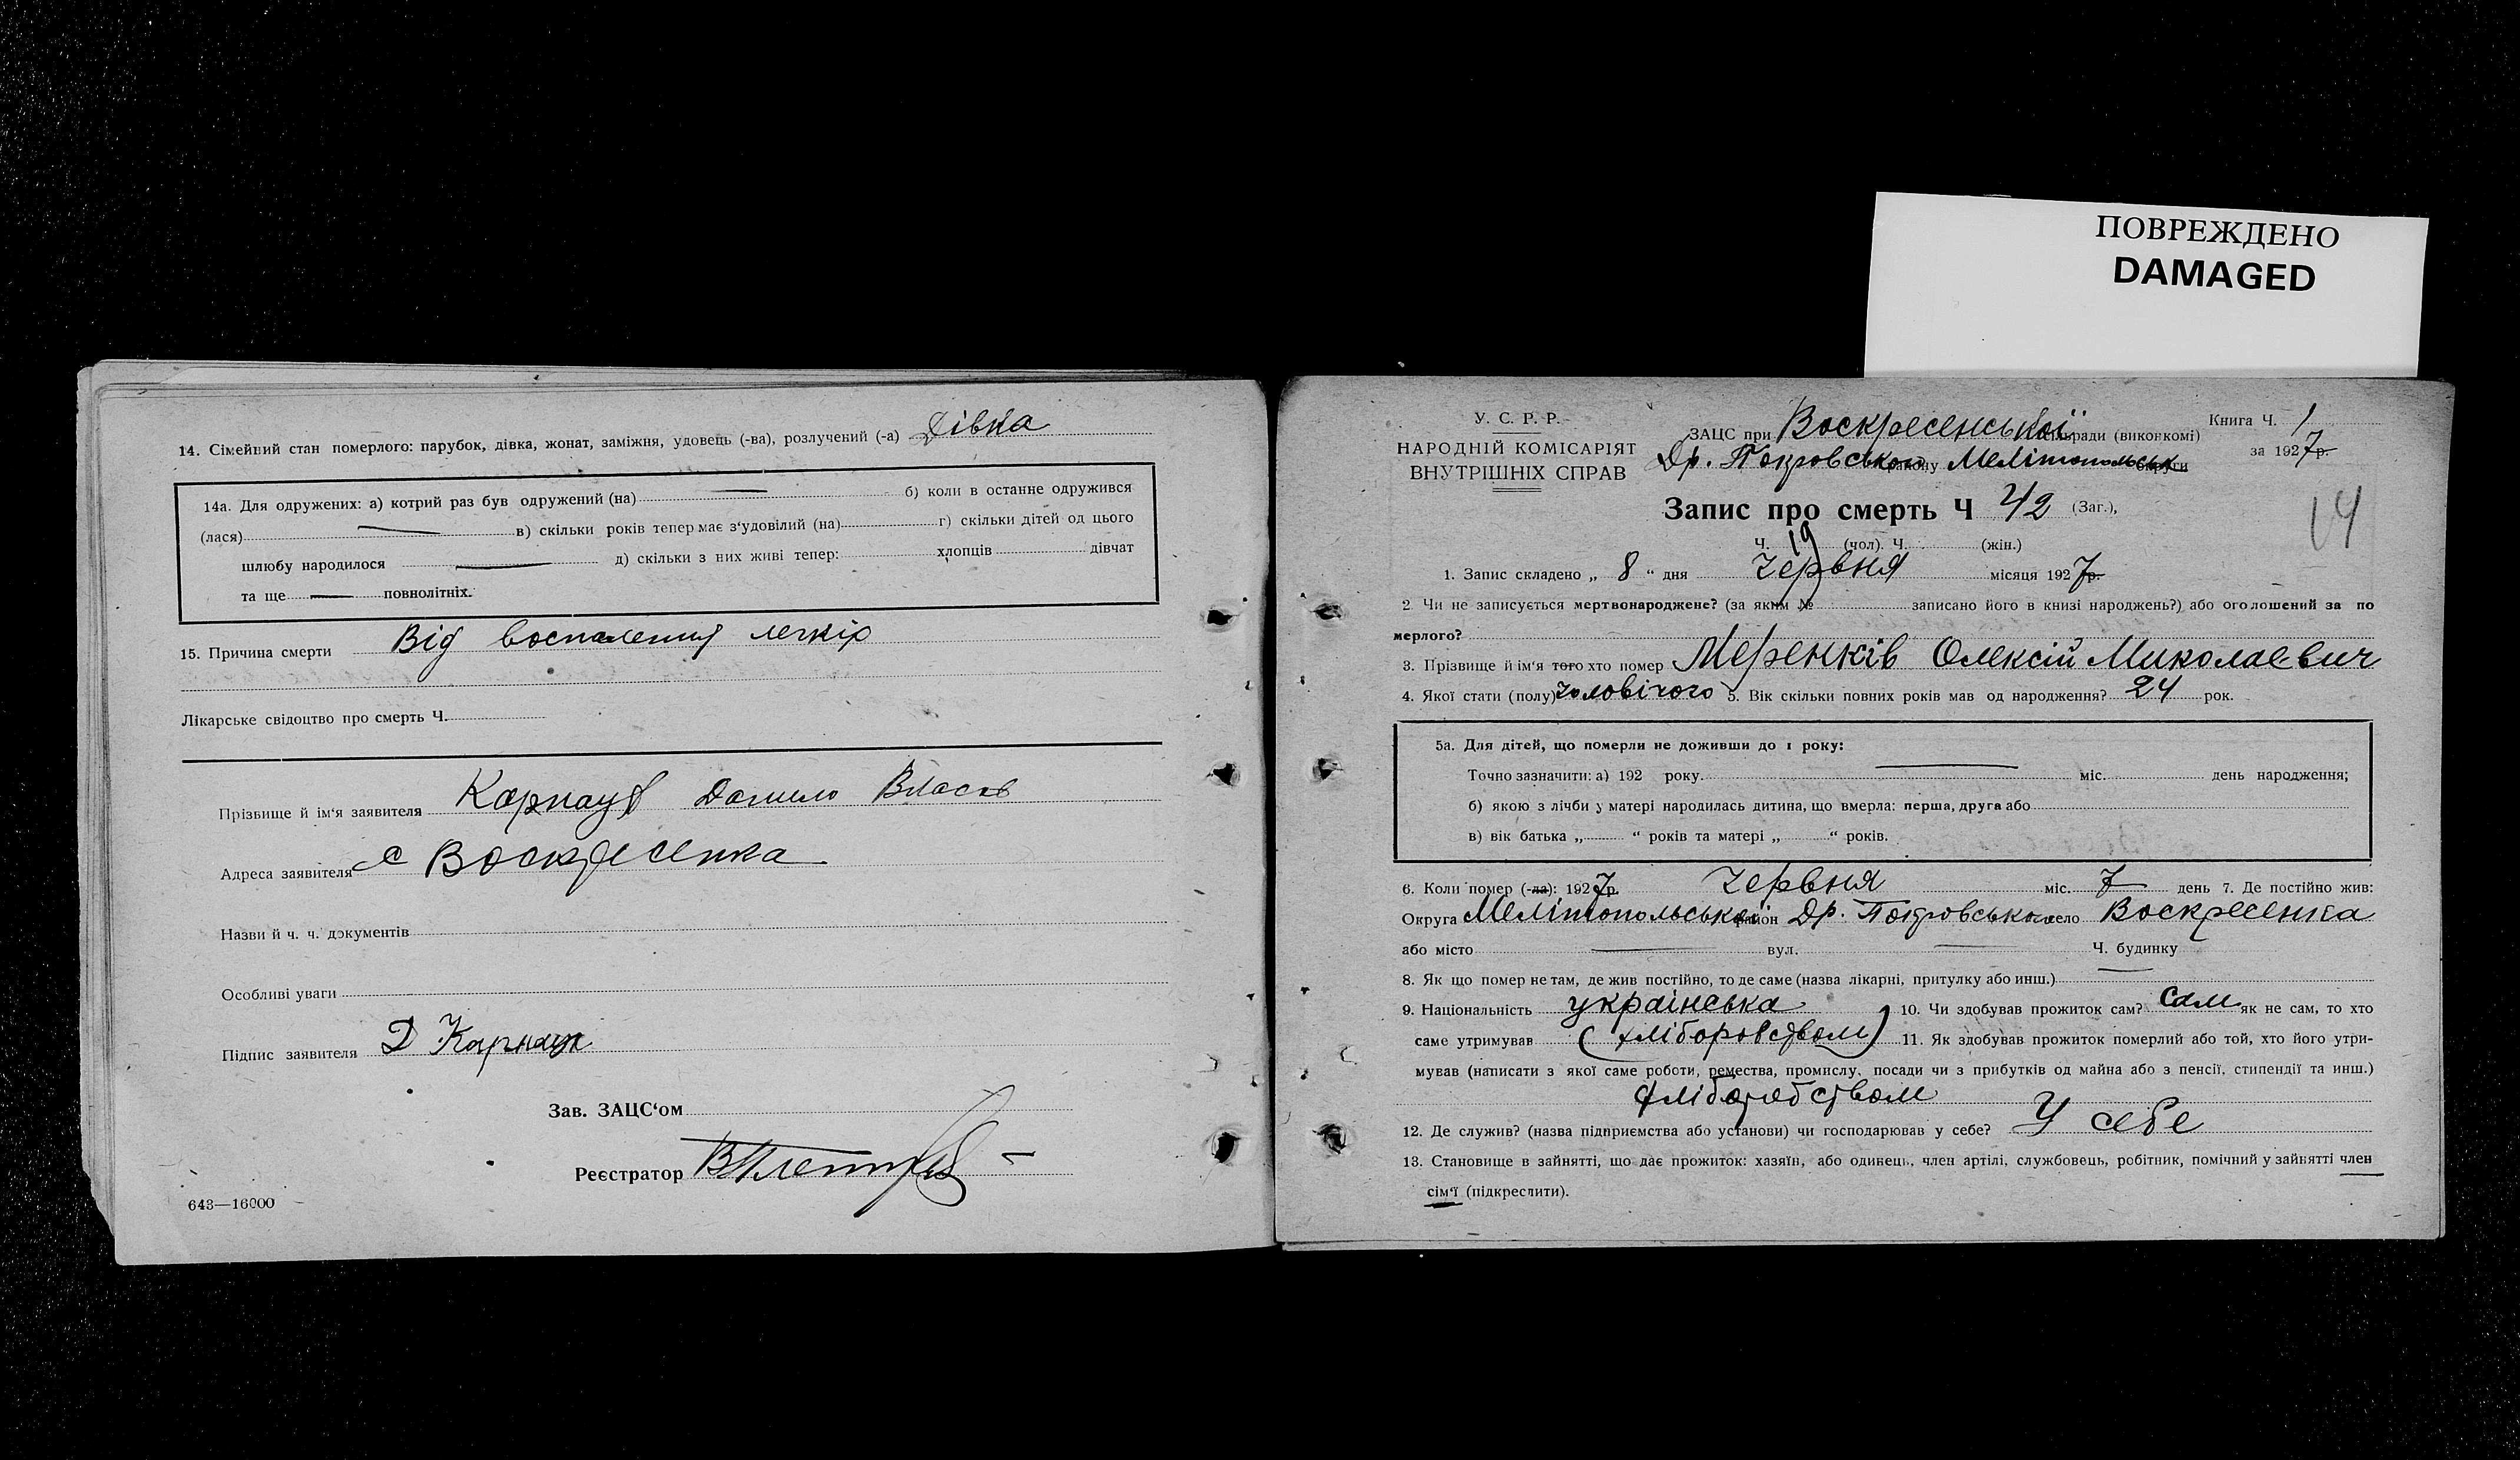 ПОВРЕЖДЕНО
DAMAGED
14. Сімейний стан померлого: парубок, дівка, жонат, заміжня, удовець (-ва), розлучений (-а) Дівка
14а. Для одружених: а) котрий раз був одружений (на) б) коли в останне одружився
(лася) в) скільки років тепер має з'удовілий (на) г) скільки дітей од цього
шлюбу народилося д) скільки з них живі тепер: хлопців дівчат
та ще повнолітніх.
15. Причина смерти Від воспаления легкіх
Лікарське свідоцтво про смерть Ч.
Прізвище й ім'я заявителя Карнаух Данило Власов
Адреса заявителя с Воскресенка
Назви й ч. ч. документів
Особливі уваги
Підпис заявителя Д Карнаух
Зав. ЗАЦС'ом
Реєстратор
643—16000
У. С. Р. Р.
НАРОДНІЙ КОМІСАРІЯТ
ВНУТРІШНІХ СПРАВ
ЗАЦС при Воскресенської сільради (виконкомі)
Др. Покровського району Мелітопольськ округи
Книга Ч. 1
за 1927 р.
14
Запис про смерть Ч 42 (Заг.),
Ч. 19 (чол). Ч. (жін.)
1. Запис складено „ 8 “ дня Червня місяця 1927 р.
2 Чи не записується мертвонароджене? (за яким № записано його в книзі народжень?) або оголошений за по
мерлого?
3. Прізвище й ім'я того хто помер Меренків Олексій Миколаевич
4. Якої стати (полу) чоловічого 5. Вік скільки повних років мав од народження? 24 рок.
5а. Для дітей, що померли не доживши до 1 року:
Точно зазначити: а) 192 року. міс. день народження;
б) якою з лічби у матері народилась дитина, що вмерла: перша, друга або
в) вік батька „ “ років та матері „ “ років.
6. Коли помер (-ла): 1927 р. Червня міс. 7 день 7. Де постійно жив:
Округа Мелітопольської район Др. Покровсько село Воскресенка
або місто вул. Ч. будинку
8. Як що помер не там, де жив постійно, то де саме (назва лікарні, притулку або инш.)
9. Національність українська 10. Чи здобував прожиток сам? Сам як не сам, то хто
саме утримував (хліборобством) 11. Як здобував прожиток померлий або той, хто його утри-
мував (написати з якої саме роботи, ремества, промислу, посади чи з прибутків од майна або з пенсії, стипендії та инш.)
хліборобством
12. Де служив? (назва підприємства або установи) чи господарював у себе? У себе
13. Становище в зайнятті, що дає прожиток: хазяїн, або одинець, член артілі, службовець, робітник, помічний у зайнятті член
сім'ї (підкреслити).